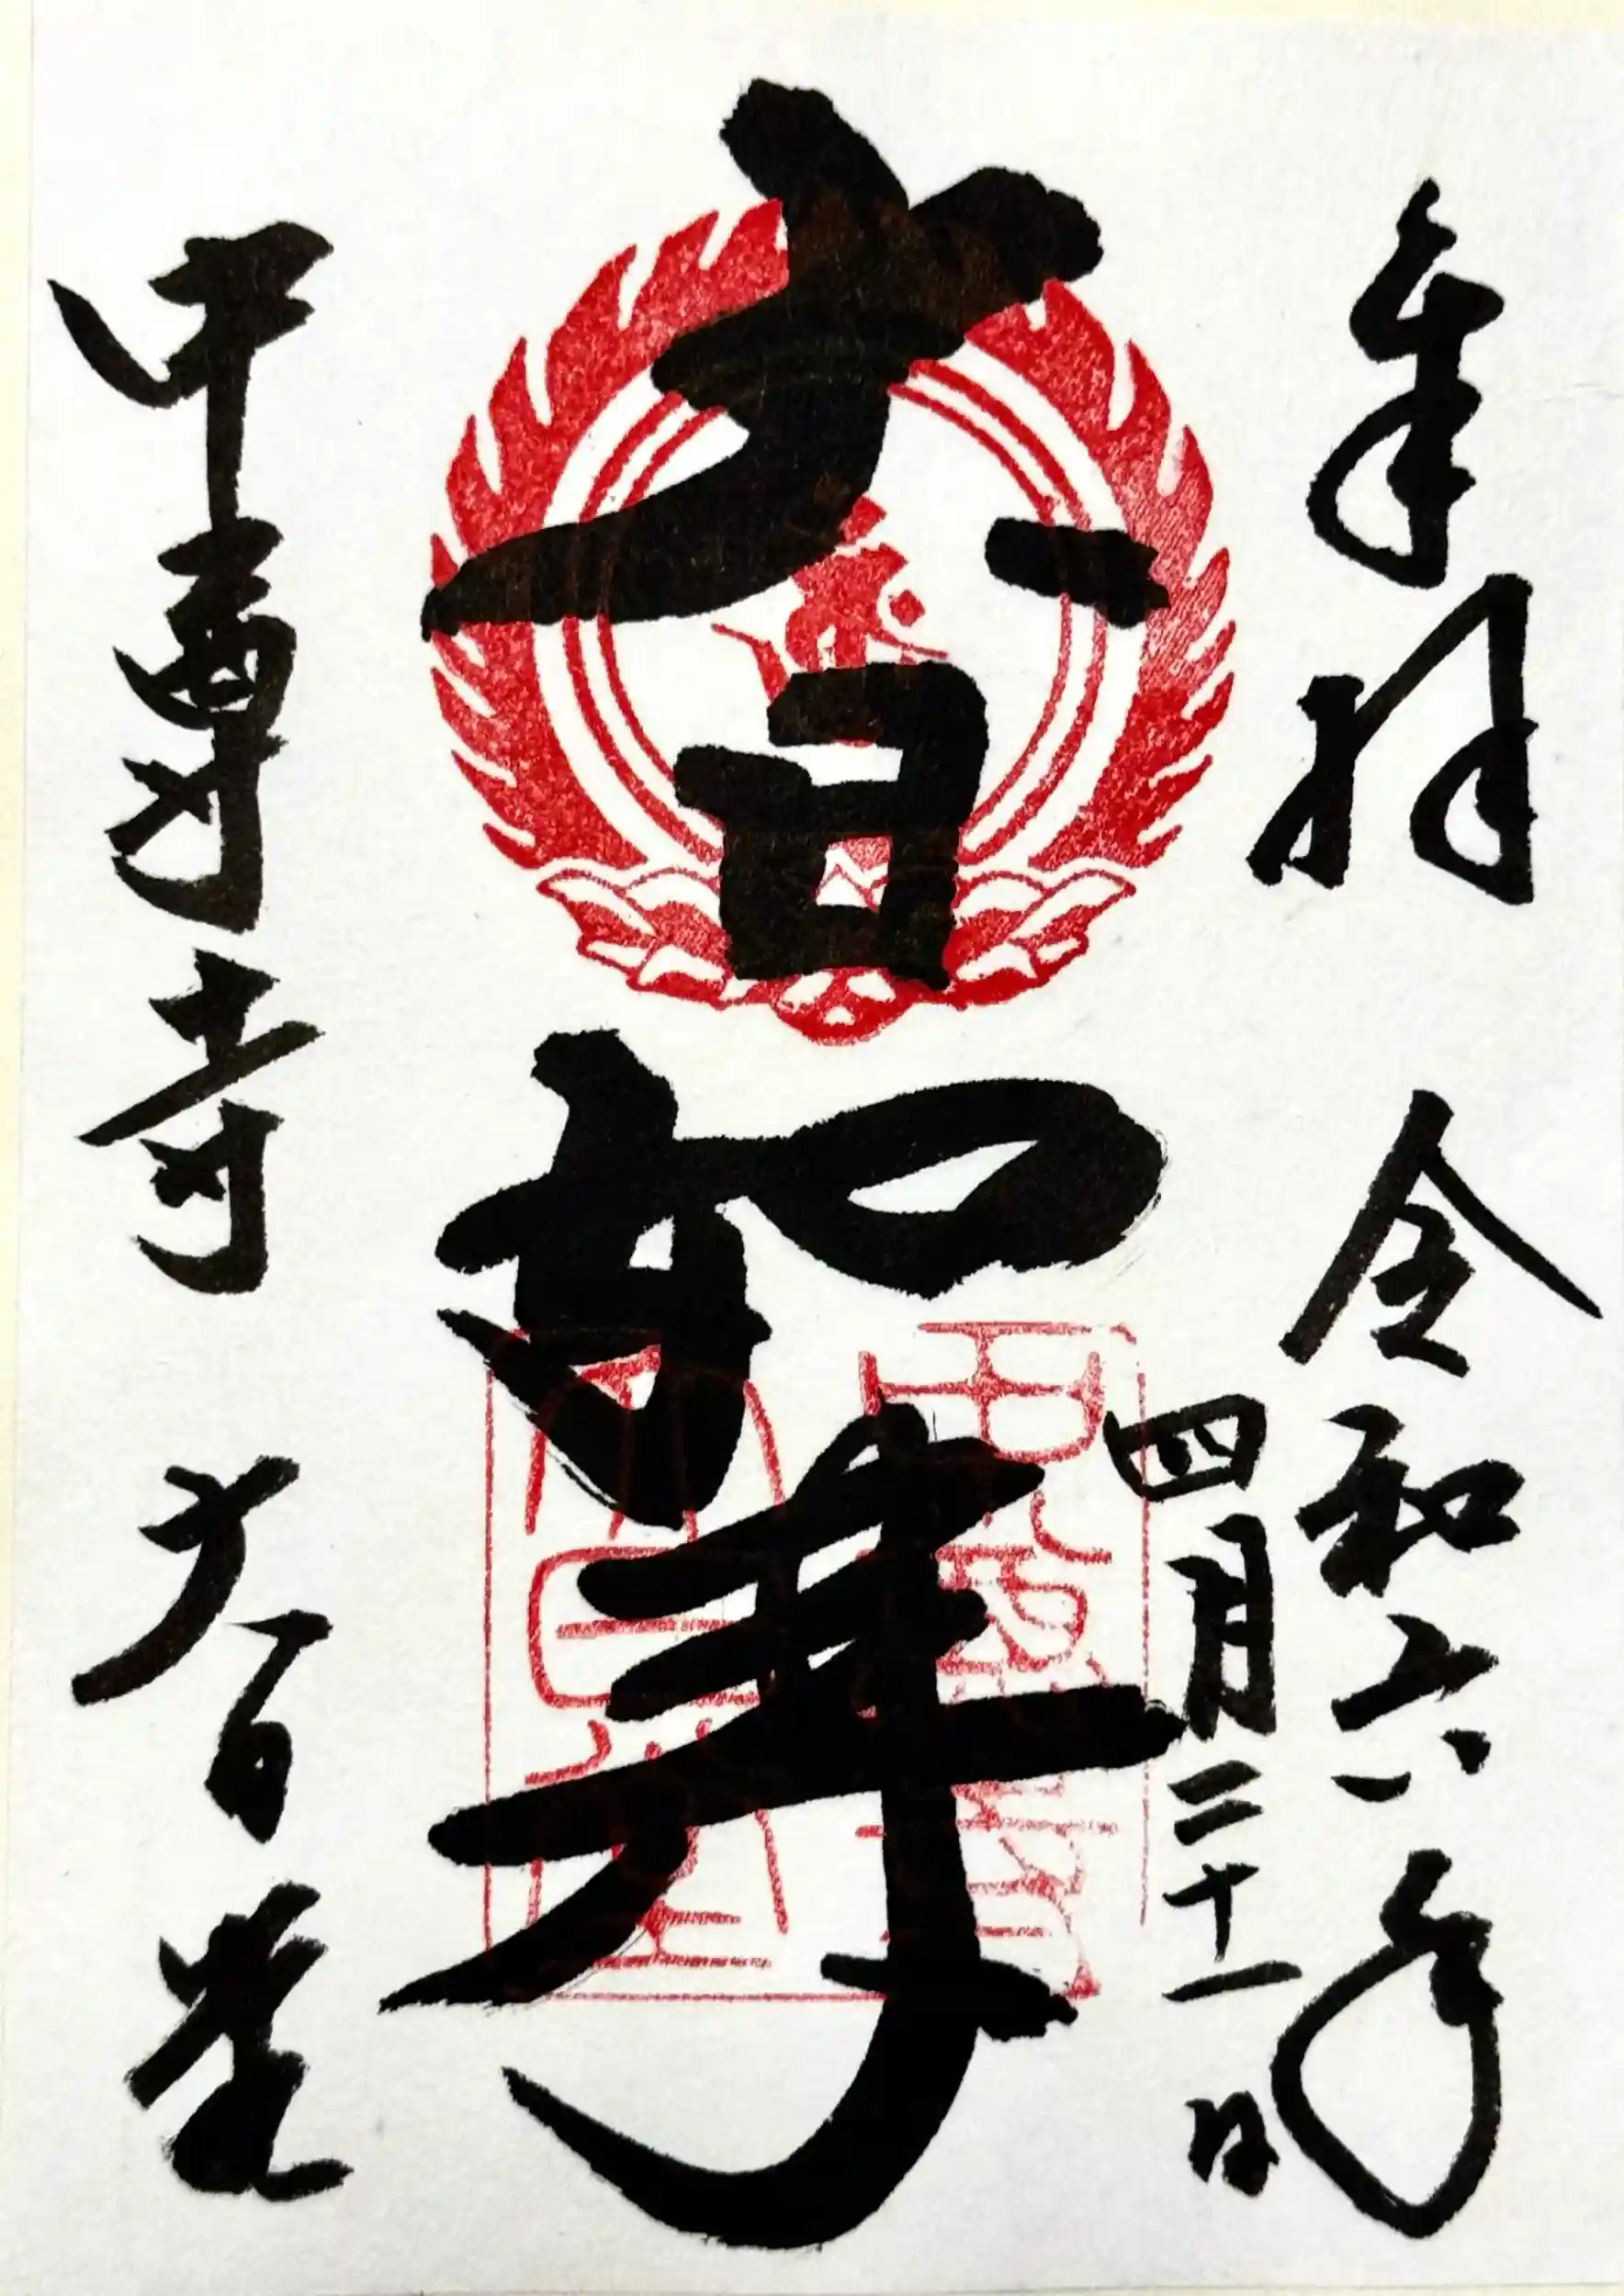 奉拝 令和六年
四月二十一日
大日如来
中尊寺 大日堂